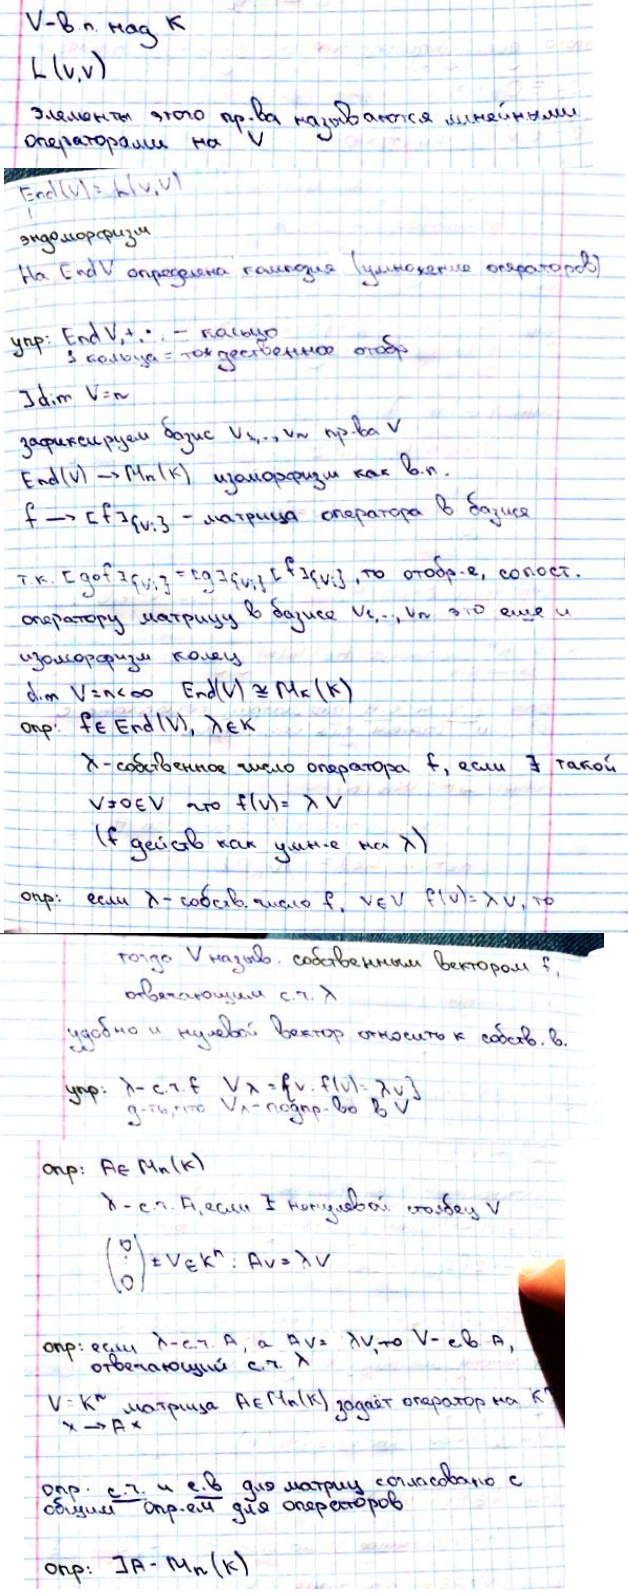 V-в.п. над K
L(V,V)
элементы этого пр.ва называются линейными
операторами на V
End(V) = L(V,V)
эндоморфизм
На End V определена компзия (умножение операторов)
упр: End V,+,· - кольцо
1 кольца = тождественное отобр
∃ dim V=n
зафиксируем базис v₁,..,vₙ пр.ва V
End(V) → Mₙ(K) изоморфизм как в.п.
f → [f]{vᵢ} - матрица оператора в базисе
т.к. [g∘f]{vᵢ} = [g]{vᵢ} [f]{vᵢ}, то отобр-е, сопост.
оператору матрицу в базисе v₁,..,vₙ это еще и
изоморфизм колец
dim V=n<∞ End(V) ≅ Mₙ(K)
опр: f∈End(V), λ∈K
λ-собственное число оператора f, если ∃ такой
V≠0∈V что f(v)= λ v
(f действ как умн-е на λ)
опр: если λ-собств.число f, v∈V f(v)=λv, то
тогда V назыв. собственным вектором f,
отвечающим с.ч. λ
удобно и нулевой вектор относить к собств. в.
упр: λ-с.ч. f Vλ = {v: f(v)=λv}
д-ть, что Vλ-подпр-во в V
опр: A∈Mₙ(K)
λ-с.ч. A, если ∃ ненулевой столбец V
(0 ⋮ 0) ≠ V∈Kⁿ : Av=λv
опр: если λ-с.ч. A, а Av= λv, то V- св A,
отвечающий с.ч. λ
V=Kⁿ матрица A∈Mₙ(K) задаёт оператор на Kⁿ
x → Ax
опр. с.ч. и с.в для матриц согласовано с
общим опр.ем для операторов
опр: ∃ A- Mₙ(K)